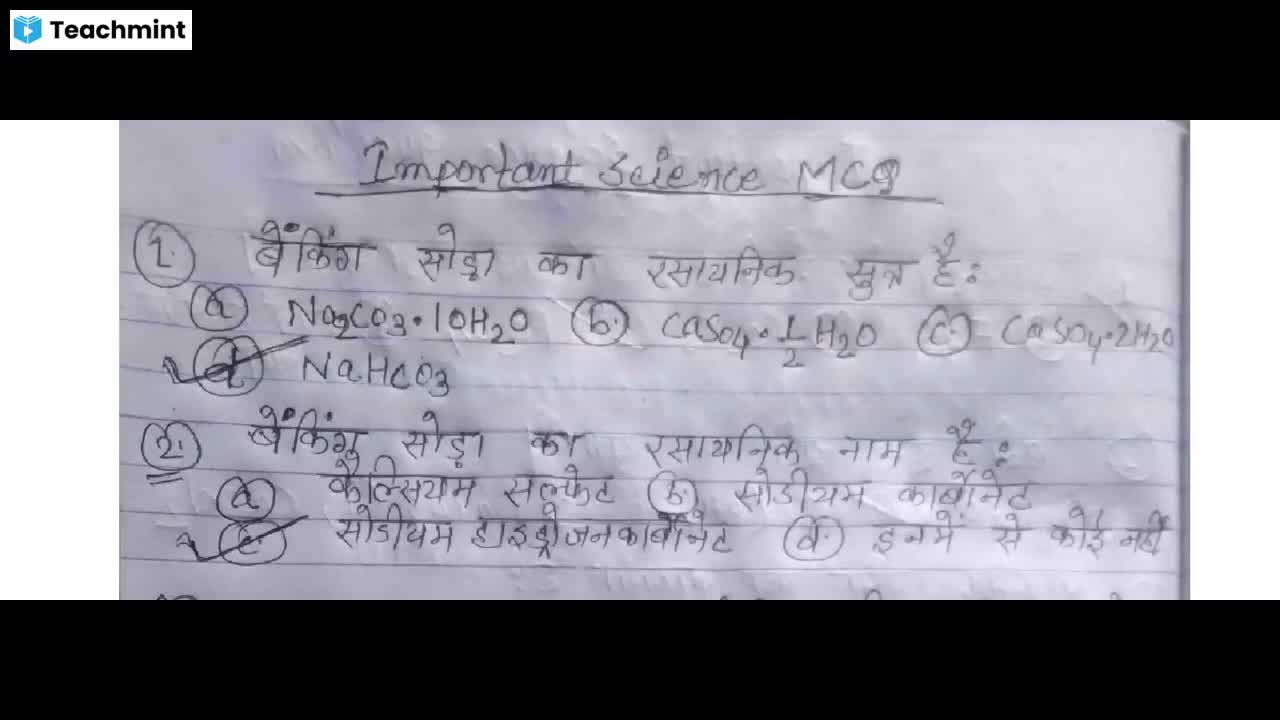 Teachmint
Important Science MCQ
1. बेंकिंग सोड़ा का रसायनिक सुत्र है:
a Na2CO3.10H2O b. CaSO4.1/2H2O c. CaSO4.2H2O
d NaHCO3
2. बेंकिंग सोड़ा का रसायनिक नाम है:
a कैल्सियम सल्फेट b. सोडीयम कार्बोनेट
c सोडीयम हाइड्रोजन कार्बोनेट d. इनमें से कोई नहीं